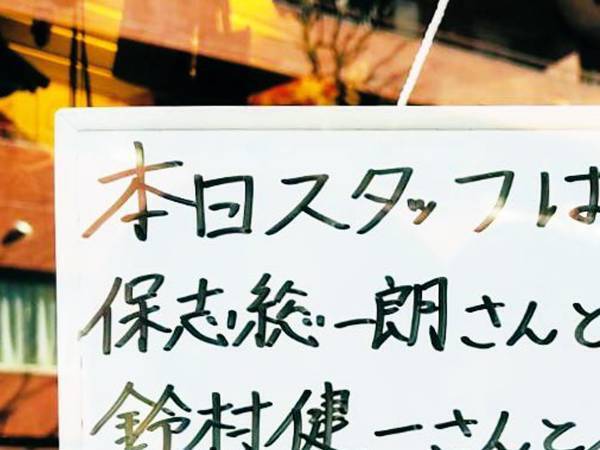 本日スタッフは
保志総一朗さんと
鈴村健一さんと